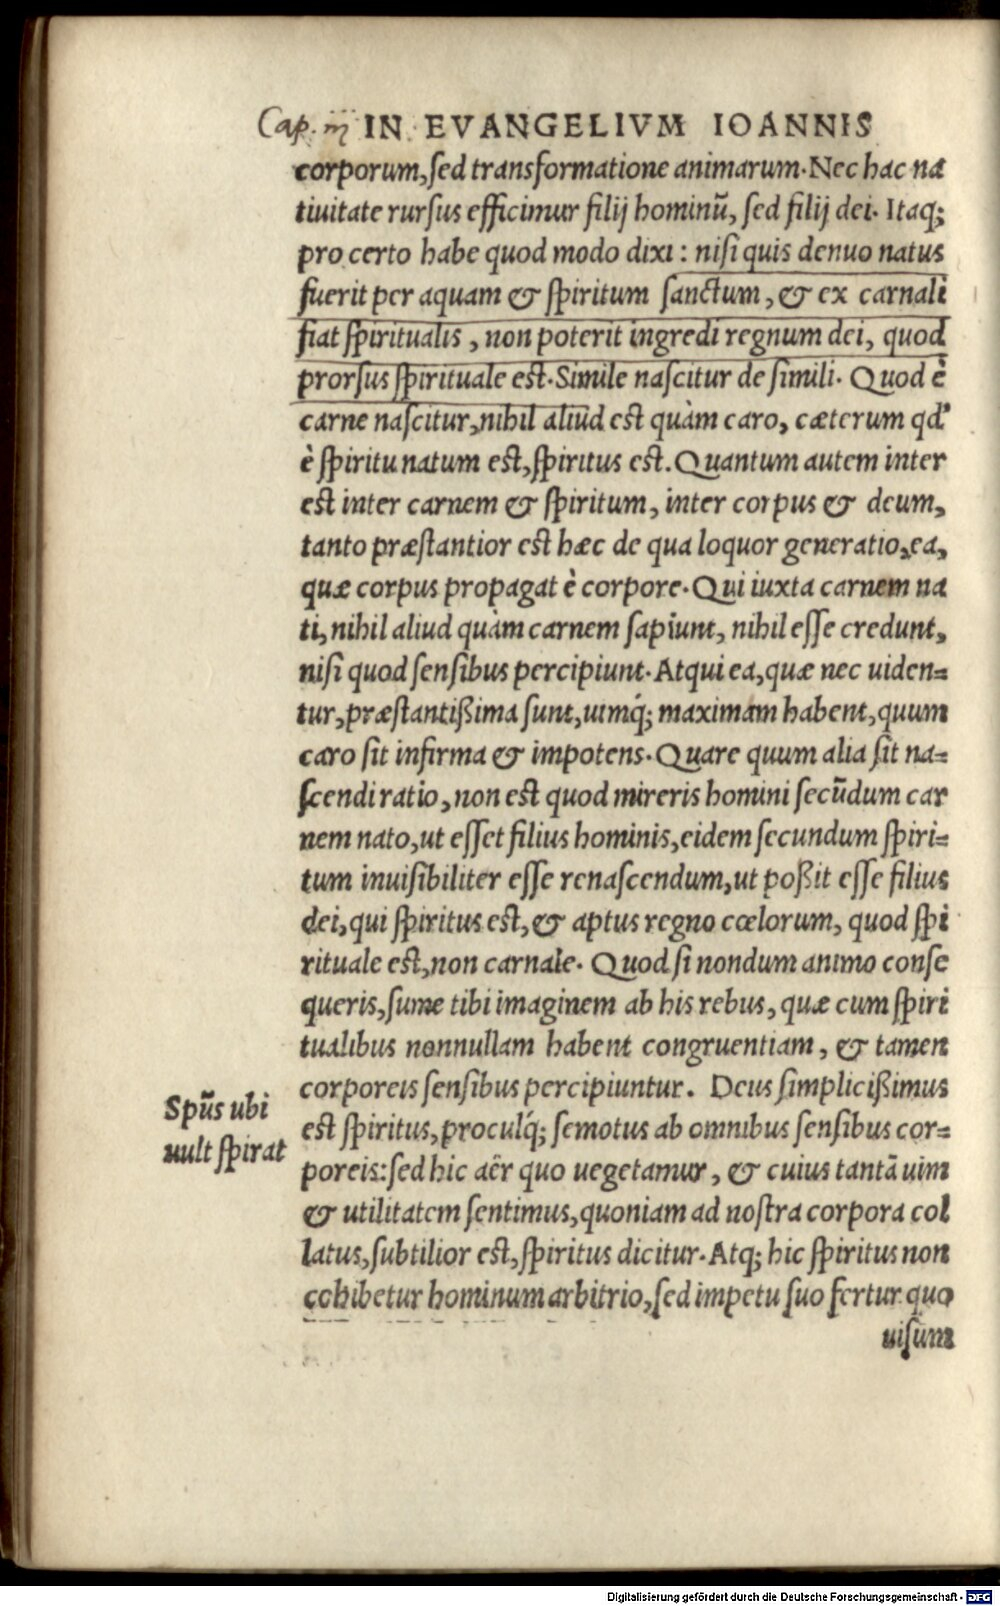 Cap. iij IN EVANGELIVM IOANNIS
corporum, sed transformatione animarum. Nec hac na
tiuitate rursus efficimur filij hominũ, sed filij dei. Itaq;
pro certo habe quod modo dixi: nisi quis denuo natus
fuerit per aquam & spiritum sanctum, & ex carnali
fiat spiritualis, non poterit ingredi regnum dei, quod
prorsus spirituale est. Simile nascitur de simili. Quod è
carne nascitur, nihil aliud est quàm caro, cæterum qd'
è spiritu natum est, spiritus est. Quantum autem inter
est inter carnem & spiritum, inter corpus & deum,
tanto præstantior est hæc de qua loquor generatio, ea,
quæ corpus propagat è corpore. Qui iuxta carnem na
ti, nihil aliud quàm carnem sapiunt, nihil esse credunt,
nisi quod sensibus percipiunt. Atqui ea, quæ nec uiden=
tur, præstantißima sunt, uimq́; maximam habent, quum
caro sit infirma & impotens. Quare quum alia sit na=
scendi ratio, non est quod mireris homini secũdum car
nem nato, ut esset filius hominis, eidem secundum spiri=
tum inuisibiliter esse renascendum, ut poßit esse filius
dei, qui spiritus est, & aptus regno cœlorum, quod spi
rituale est, non carnale. Quod si nondum animo conse
queris, sume tibi imaginem ab his rebus, quæ cum spiri
tualibus nonnullam habent congruentiam, & tamen
corporeis sensibus percipiuntur. Deus simplicißimus
Spũs ubi
uult spirat
est spiritus, proculq́; semotus ab omnibus sensibus cor=
poreis: sed hic aër quo uegetamur, & cuius tantã uim
& utilitatem sentimus, quoniam ad nostra corpora col
latus, subtilior est, spiritus dicitur. Atq; hic spiritus non
cohibetur hominum arbitrio, sed impetu suo fertur quo
uisum
Digitalisierung gefördert durch die Deutsche Forschungsgemeinschaft - DFG